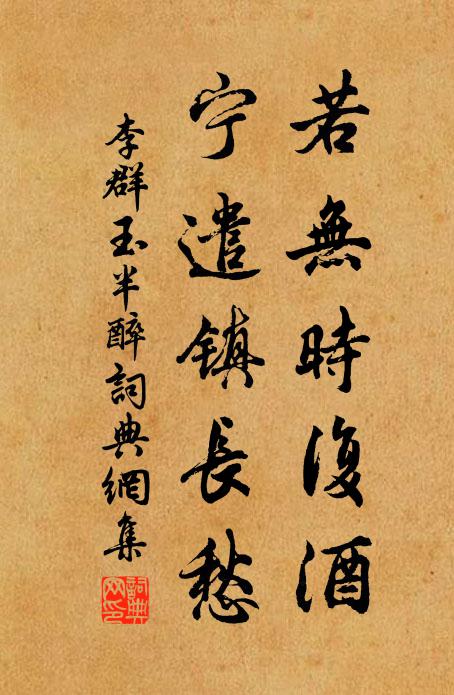 若無時復酒
宁遣镇長愁
李群玉半醉詞典網集
詞典
网印